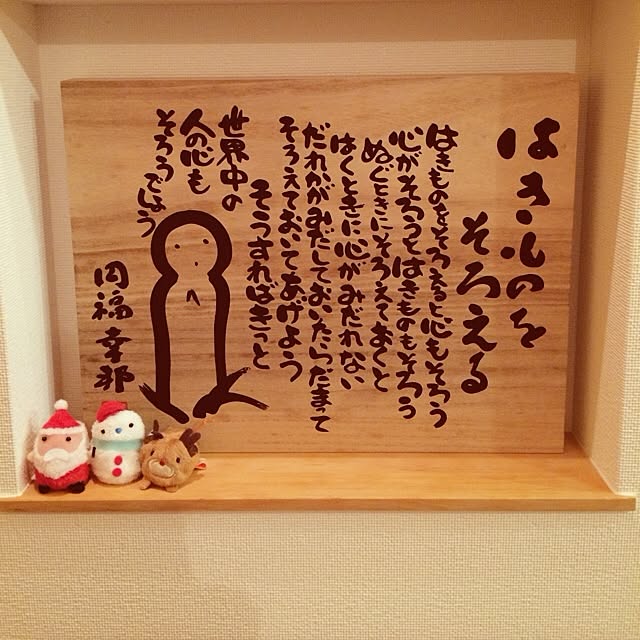 はきものを
そろえる
はきものをそろえると心もそろう
心がそろうとはきものもそろう
ぬぐときにそろえておくと
はくときに心がみだれない
だれかがみだしておいたらだまって
そろえておいてあげよう
そうすればきっと
世界中の
人の心も
そろうでしょう
円福幸那